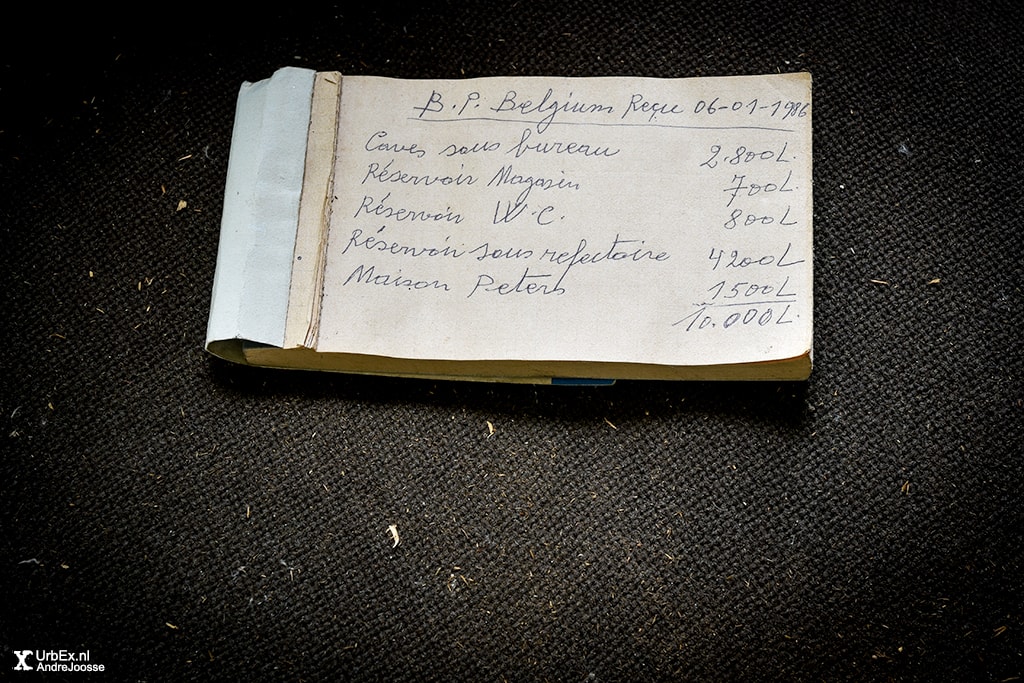 B.P. Belgium Reçu 06-01-1986
Caves sous bureau 2.800L.
Réservoir Magasin 700L.
Réservoir W.C. 800L
Réservoir sous refectoire 4200L
Maison Peters 1500L
10.000L.
UrbEx.nl
AndreJoosse